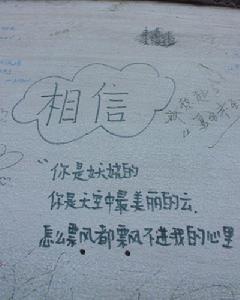 相信
"你是妖娆的
你是天空中最美丽的云.
怎么飘风都飘不进我的心里